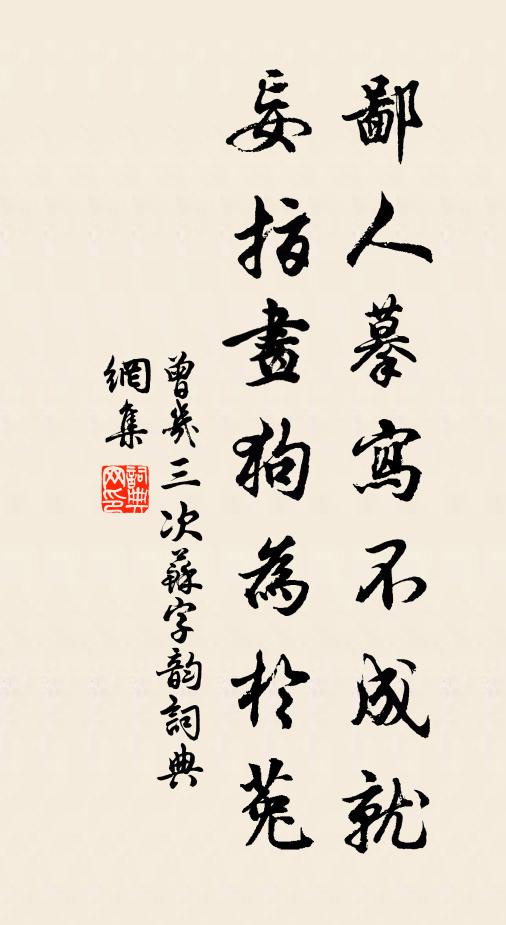 鄙人摹寫不成就
妄指畫狗為於菟
曾幾三次蘇字韵詞典
網集
詞典
网印